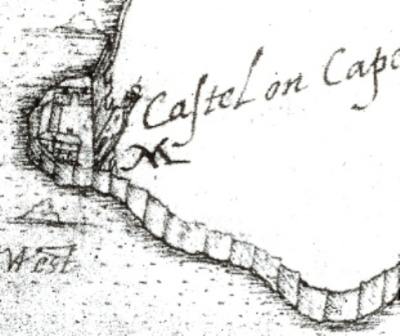 Castel on Cape
West